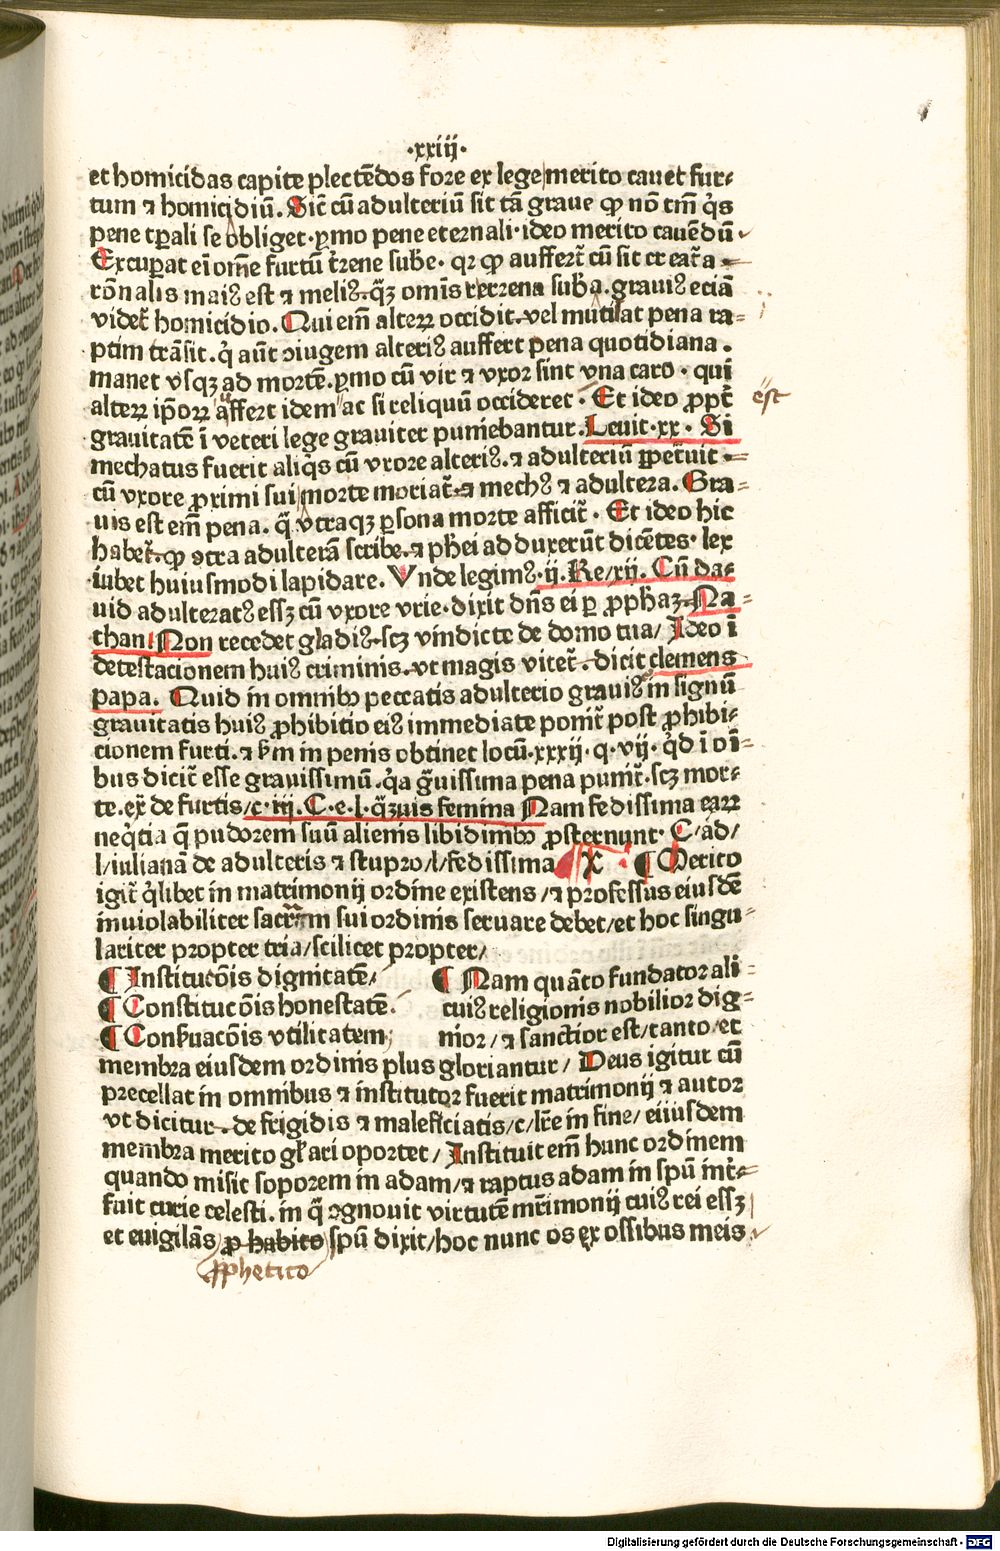 ·xxiij·
et homicidas capite plectēdos fore ex lege merito cauet fur⸗
tum ⁊ homicidiū. Sic̄ cū adulteriū sit tā graue ꝙ nō tm̄ q̄s
pene tꝑali se obliget·ꝑmo pene eternali·ideo merito cauēdū
Excuꝑat ei om̄e furtū t̄rene sub̄e· qꝛ ꝙ auffert̄ cū sit creat̄a
rōnalis maiꝰ est ⁊ meliꝰ·q̄ꝫ om̄is terrena sub̄a. grauiꝰ eciā
videt̄ homicidio. Qui em̄ alteꝝ occidit·vel mutilat pena ra⸗
ptim trāsit. q̇ aūt ↄiugem alteriꝰ auffert pena quotidiana.
manet vsqꝫ ad mortē. ꝑmo cū vir ⁊ vxor sint vna caro· qui
alteꝝ ip̄oꝝ affert idem ac si reliquū occideret· Et ideo ꝓpt̄ est
grauitatē ī veteri lege grauiter puniebantur. Leuit·xx· Si
mechatus fuerit aliq̇s cū vxore alteriꝰ·⁊ adulteriū ꝑpet̄uit
cū vxore ꝓximi sui morte moriat̄·⁊ mechꝰ ⁊ adultera. Gra⸗
uis est em̄ pena. q̄ vtraqꝫ ꝑsona morte afficit̄· Et ideo hic
habet̄·ꝙ ↄtra adulterā scribe·⁊ ph̄ei adduxerūt dicētes· lex
iubet huiusmodi lapidare. Vnde legimꝰ·ij. Re/xij. Cū da⸗
uid adulteratꝰ essꝫ cū vxore vrie·dixit dn̄s ei ꝑ ꝓph̄aꝫ·Na⸗
than Non recedet gladiꝰ·scꝫ vindicte de domo tua/ Ideo ī
detestacionem huiꝰ criminis·vt magis vitet̄· dicit clemens
papa. Quid in omnibꝰ peccatis adulterio grauiꝰ in signū
grauitatis huiꝰ ꝓhibitio eiꝰ immediate ponit̄ post ꝓhibi⸗
cionem furti·⁊ ẜm in penis obtinet locū·xxxij·q·vij·q̄d ī oī⸗
bus dicit̄ esse grauissimū·q̇a g̈uissima pena punit̄·scꝫ mor⸗
te·ex̄ de furtis/c·iij· C·e·l·q̄ꝫuis femina Nam fedissima eaꝝ
neq̇tia q̄ pudorem suū alienis libidinibꝰ ꝓsternunt· C/ad/
l/iulianā de adulteris ⁊ stupro/l/fedissima X ¶ Merito
igit̄ q̇libet in matrimonij ordine existens/⁊ professus eiusdē
inuiolabiliter sacr̄m sui ordinis seruare debet/et hoc singu⸗
lariter propter tria/scilicet propter/
¶ Institucōis dignitatē/ ¶ Nam quāto fundator ali⸗
¶ Constitucōis honestatē· cuiꝰ religionis nobilior dig⸗
¶ Conẜuacōis vtilitatem; nior/⁊ sanctior est/tanto/et
membra eiusdem ordinis plus gloriantur/ Deus igitur cū
precellat in omnibus ⁊ institutor fuerit matrimonij ⁊ autor
vt dicitur·de frigidis ⁊ maleficiatis/c/lr̄e in fine/eiiusdem
membra merito gl̄ari oportet/ Instituit em̄ hunc ordinem
quando misit soporem in adam/⁊ raptus adam in spū int̄⸗
fuit curie celesti·in q̄ ↄgnouit virtutē mr̄imonij cuiꝰ rei essꝫ
et euigilās ꝓhabito spū dixit/hoc nunc os ex ossibus meis
ꝓphetico
Digitalisierung gefördert durch die Deutsche Forschungsgemeinschaft - DFG